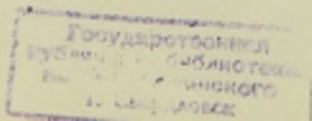 Государственная
Публичная библиотека
им. Белинского
г. Свердловск